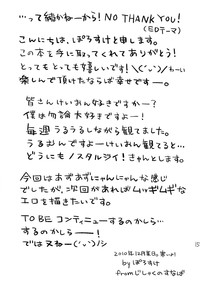 …って續かねーから! NO THANK YOU!
(EDテーマ)
こんにちは、ぽろすけと申します。
この本を手に取ってくれてありがとう!
とってもとっても嬉しいです! \(´ω`)/わーい
楽しんで頂けたならば幸せですー。
皆さんけいおん好きですかー?
僕は勿論大好きですよー!
毎週うるうるしながら観てました。
うるおんですよーけいおん観てると…
どうにもノスタルジイ!きゃんとします。
今回はあずあずにゃんにゃんな感じ
でしたが、次回があればムッギムギな
エロを描きたいです。
TO BE コンティニューするのかしら…
するのかしらー!
ではヌねー(´ω`)ノシ
2010年12月某日,寒いッ!
by ぽろすけ
from じしゃくのすなば
15